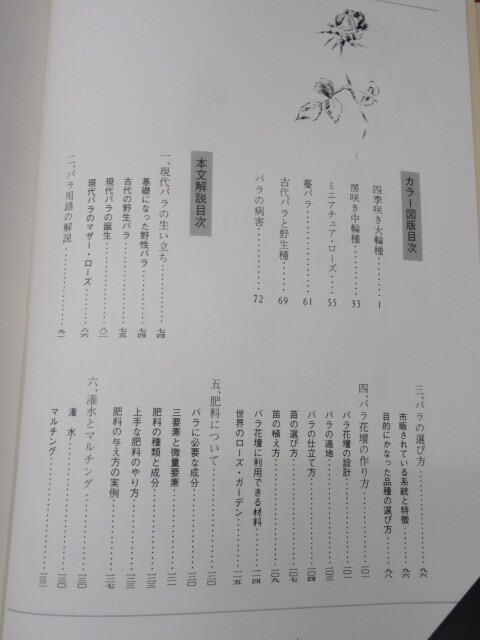 カラー図版目次
四季咲き大輪種‥‥‥‥1
房咲き中輪種‥‥‥‥33
ミニアチュア・ローズ‥‥‥‥55
蔓バラ‥‥‥‥61
古代バラと野生種‥‥‥‥69
バラの病害‥‥‥‥72
本文解説目次
一、現代バラの生い立ち‥‥‥‥七四
基礎になった野性バラ‥‥‥‥七四
古代の野生バラ‥‥‥‥七五
現代バラの誕生‥‥‥‥八二
現代バラのマザー・ローズ‥‥‥‥八六
二、バラ用語の解説‥‥‥‥九一
三、バラの選び方‥‥‥‥九六
市販されている系統と特徴‥‥‥‥九六
目的にかなった品種の選び方‥‥‥‥九八
四、バラ花壇の作り方‥‥‥‥一〇一
バラ花壇の設計‥‥‥‥一〇一
バラの適地‥‥‥‥一〇三
バラの仕立て方‥‥‥‥一〇四
苗の選び方‥‥‥‥一〇七
苗の植え方‥‥‥‥一〇九
バラ花壇に利用できる材料‥‥‥‥一一四
世界のローズ・ガーデン‥‥‥‥一一五
五、肥料について‥‥‥‥一二〇
バラに必要な成分‥‥‥‥一二〇
三要素と微量要素‥‥‥‥一二一
肥料の種類と成分‥‥‥‥一二三
上手な肥料のやり方‥‥‥‥一二三
肥料の与え方の実例‥‥‥‥一二七
六、潅水とマルチング‥‥‥‥一三〇
潅水‥‥‥‥一三〇
マルチング‥‥‥‥一三一